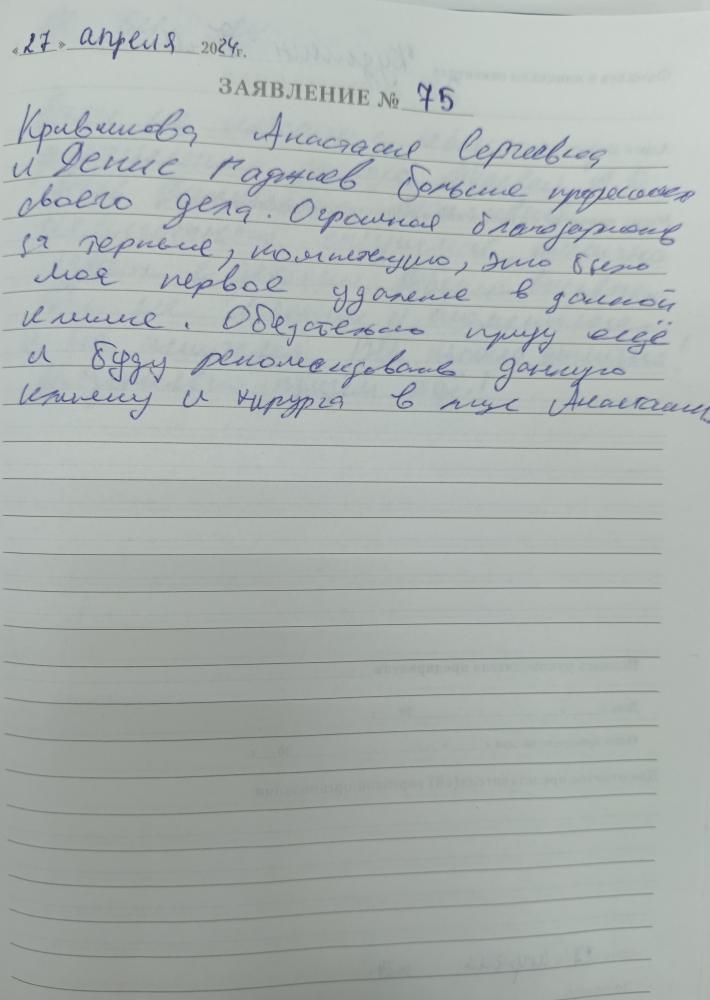 «27» апреля 2024г.
ЗАЯВЛЕНИЕ № 75
Анастасия Сергеевна
и Денис Гаджиев большие
своего дела. Огромная благодарность
за терпение, это было
моё первое удаление в данной
клинике. Обязательно приду ещё
и буду рекомендовать данную
клинику и хирурга в лице Анастасии